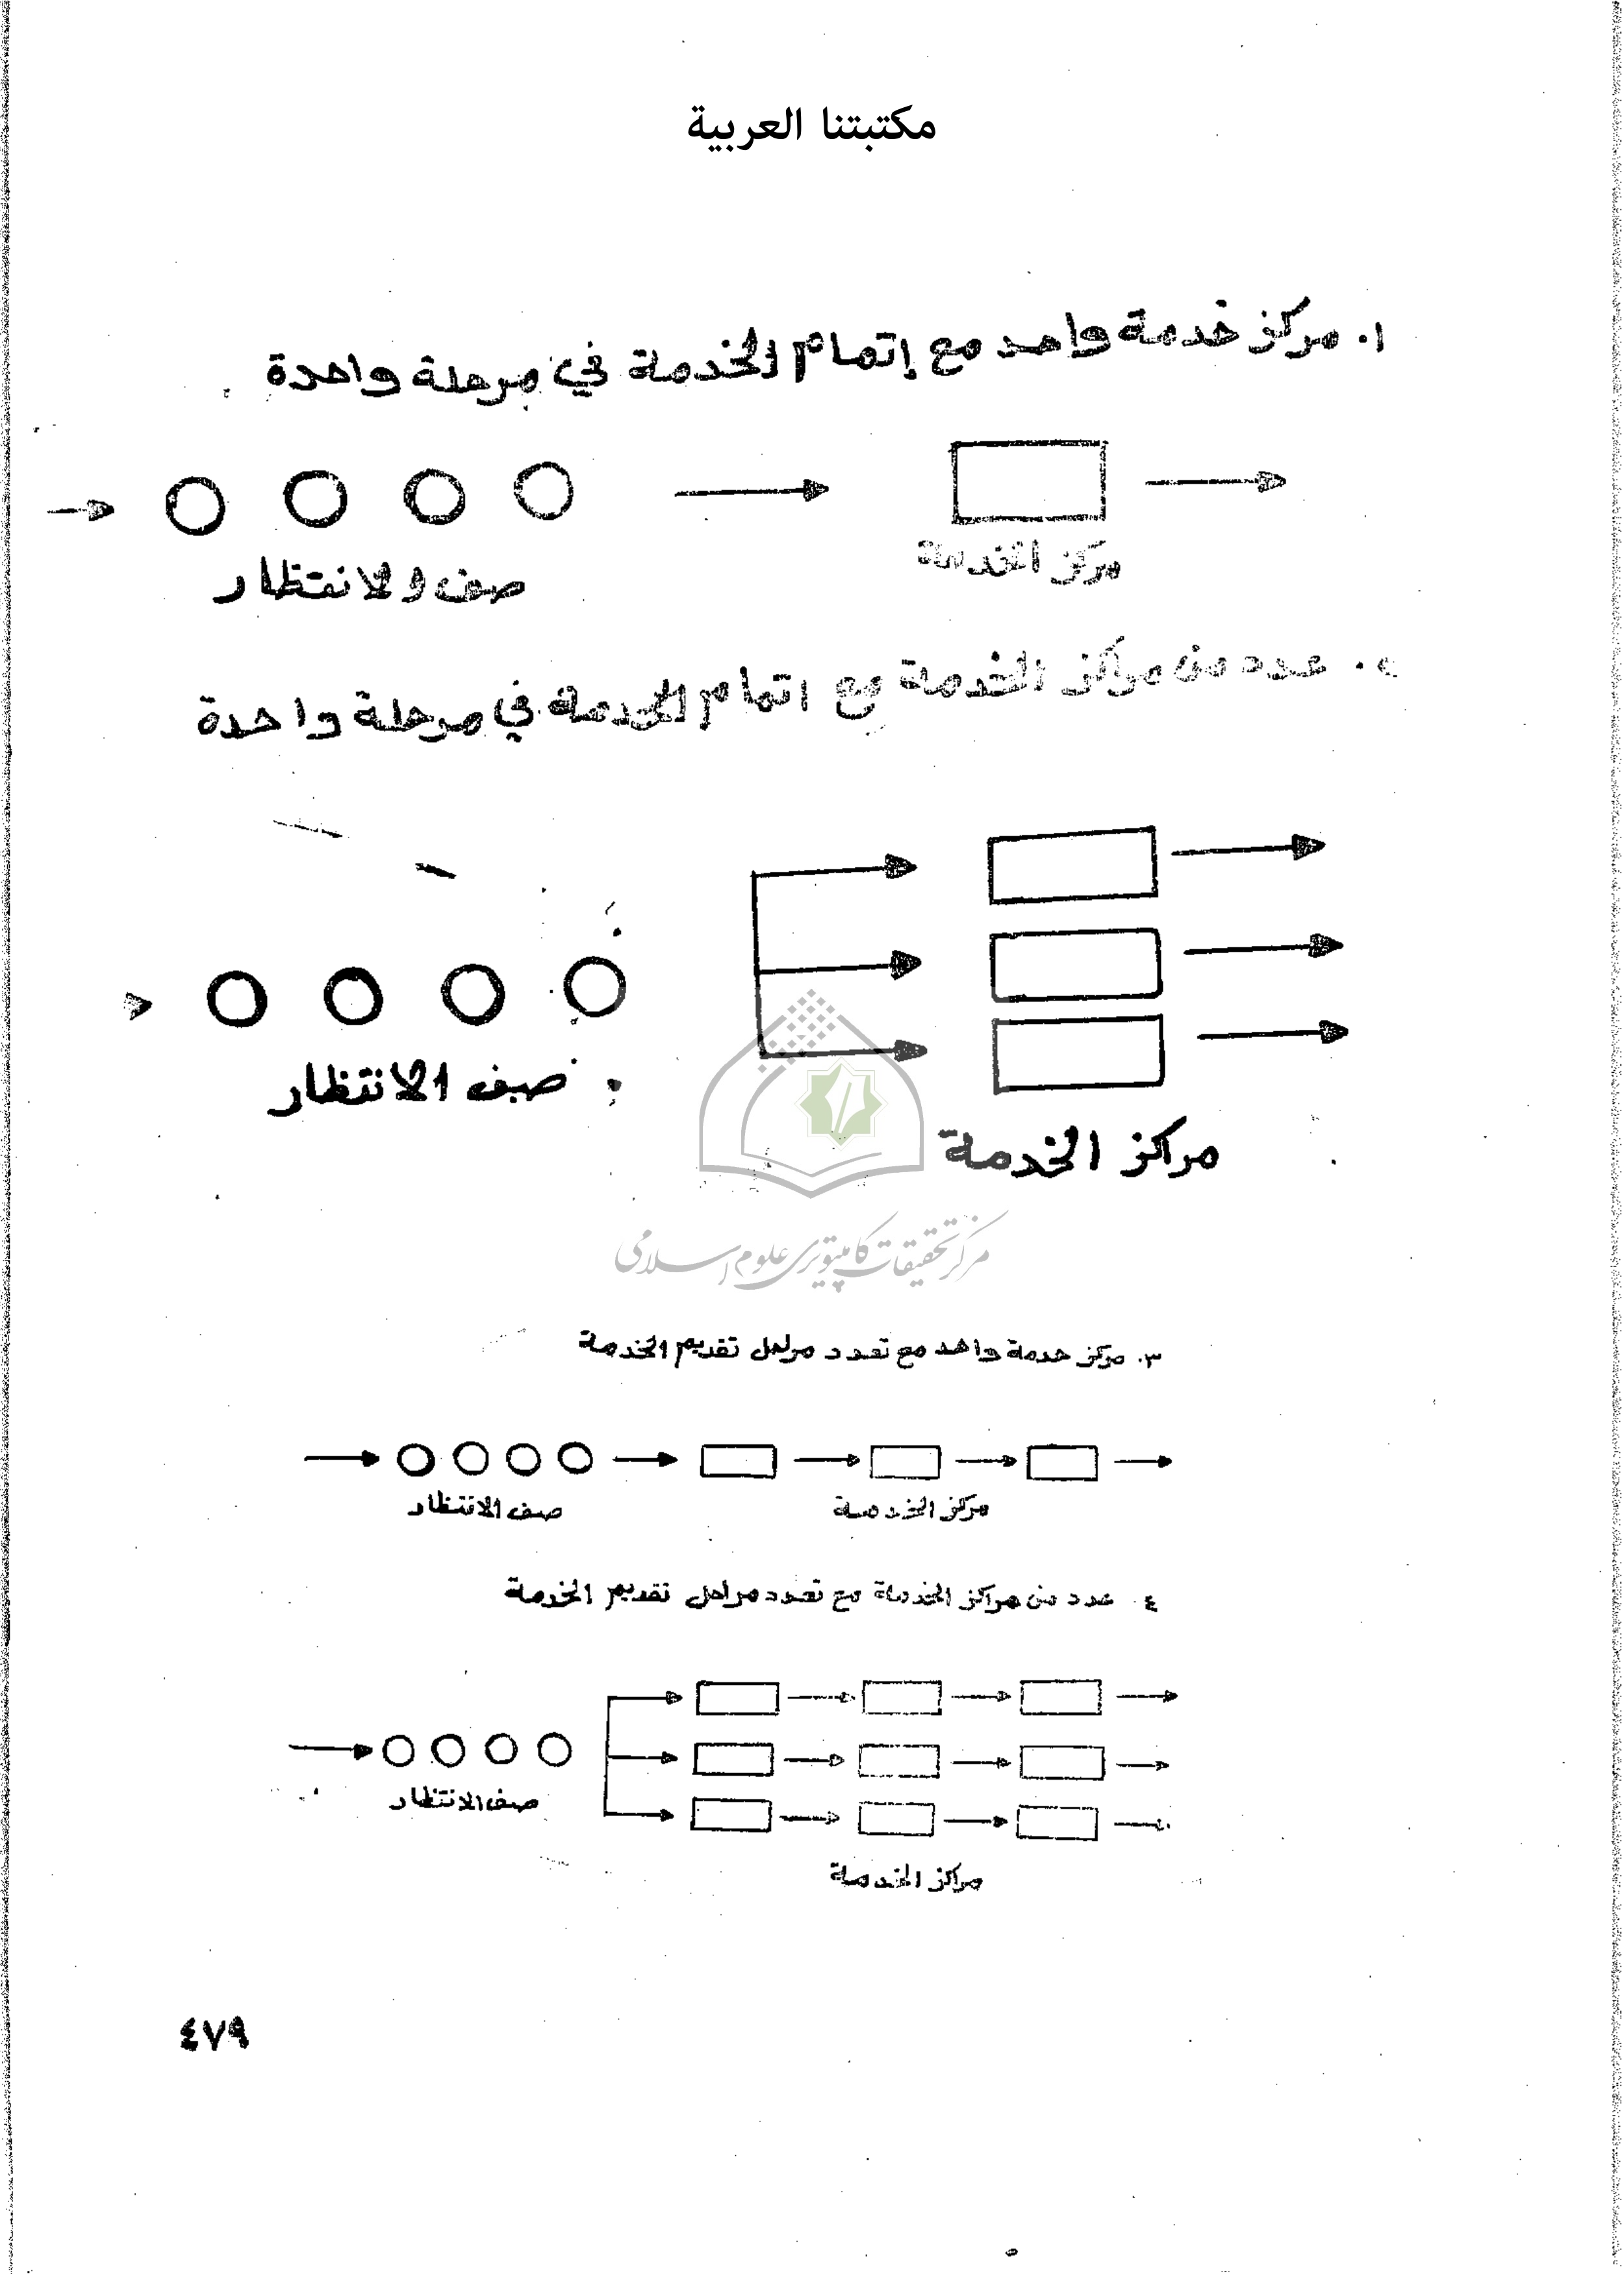 مكتبتنا العربية
١. مركز خدمة واحد مع إتمام الخدمة في مرحلة واحدة
مركز الخدمة
صف الانتظار
٢. عدد من مراكز الخدمة مع اتمام الخدمة في مرحلة واحدة
صف الانتظار
مراكز الخدمة
مرکز تحقیقات کامپیوتری علوم اسلامی
٣. مركز خدمة واحد مع تعدد مراحل تقديم الخدمة
صف الانتظار
مركز الخدمة
٤. عدد من مراكز الخدمة مع تعدد مراحل تقديم الخدمة
صف الانتظار
مراكز الخدمة
٤٧٩